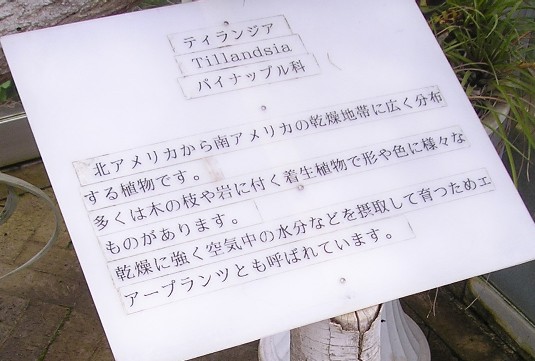 ティランジア
Tillandsia
パイナップル科
北アメリカから南アメリカの乾燥地帯に広く分布
する植物です。
多くは木の枝や岩に付く着生植物で形や色に様々な
ものがあります。
乾燥に強く空気中の水分などを摂取して育つためエ
アープランツとも呼ばれています。